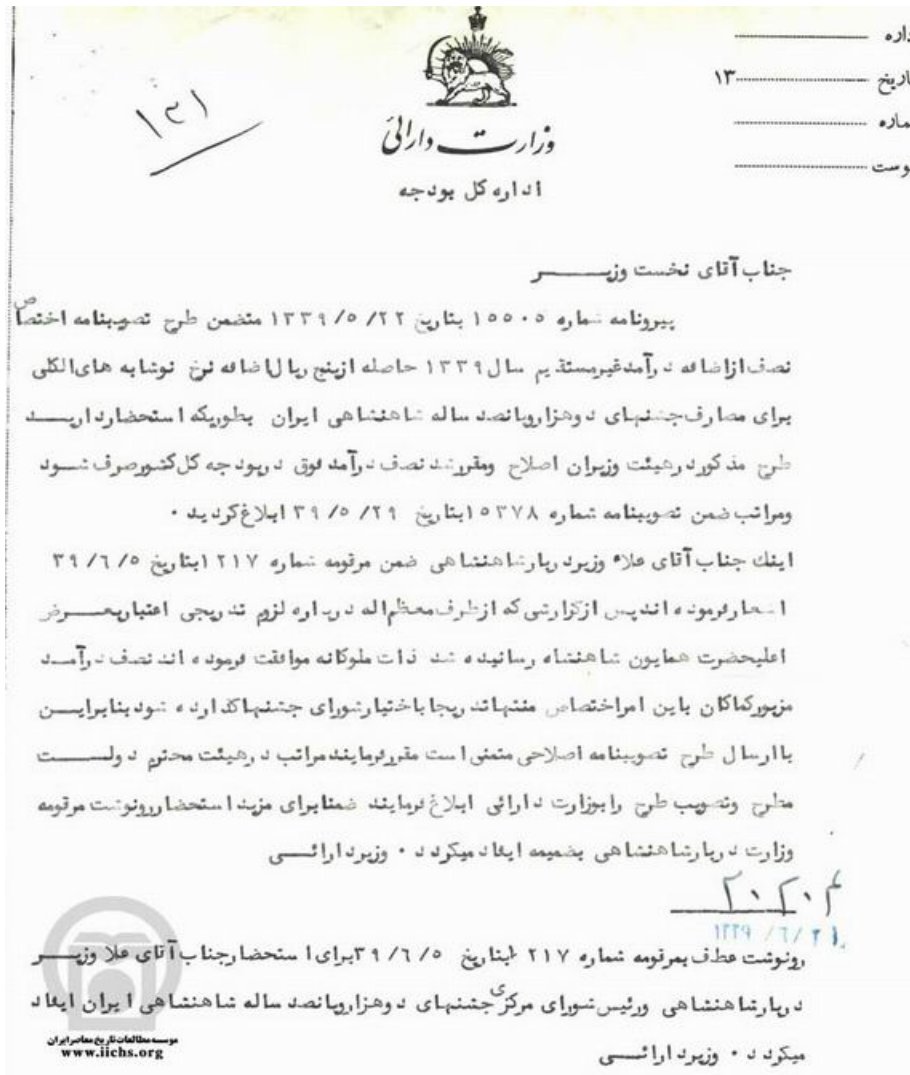 داره
اریخ ۱۳
ماره
وست
۱۳۱
وزارت دارائی
اداره کل بودجه
جناب آقای نخست وزیر
پیرونامه شماره ۱۵۵۰۵ بتاریخ ۱۳۳۹/۵/۲۲ متضمن طرح تصویبنامه اختصاص
نصف ازاضافه درآمدغیرمستقیم سال ۱۳۳۹ حاصله ازپنج ریال اضافه نرخ نوشابه های الکلی
برای مصارف جشنهای دوهزاروپانصد ساله شاهنشاهی ایران بطوریکه استحضاردارید
طرح مذکوردرهیئت وزیران اصلاح ومقررشد نصف درآمد فوق دربودجه کل کشورصرف شود
ومراتب ضمن تصویبنامه شماره ۱۵۳۷۸ بتاریخ ۳۹/۵/۲۹ ابلاغ گردید .
اینك جناب آقای علاء وزیردربارشاهنشاهی ضمن مرقومه شماره ۱۲۱۷ بتاریخ ۳۹/۶/۵
اشعارفرموده اندپس ازگزارشی که ازطرف معظم اله درباره لزوم تدریجی اعتباربعرض
اعلیحضرت همایون شاهنشاه رسانیده شد ذات ملوکانه موافقت فرموده اند نصف درآمد
مزبورکماکان باین امراختصاص منتهاتدریجا باختیارشورای جشنهاگذارده شود بنابراین
باارسال طرح تصویبنامه اصلاحی متمنی است مقررفرمایندمراتب درهیئت محترم دولت
مطرح وتصویب طرح رابوزارت دارائی ابلاغ فرمایند ضمنابرای مزید استحضاررونوشت مرقومه
وزارت دربارشاهنشاهی بضمیمه ایفاد میگردد . وزیردارائی
۲۰۲۰۴
۱۳۳۹/۶/۲۱
رونوشت عطف بمرقومه شماره ۱۲۱۷ بتاریخ ۳۹/۶/۵ برای استحضارجناب آقای علا وزیر
دربارشاهنشاهی ورئیس شورای مرکزی جشنهای دوهزاروپانصد ساله شاهنشاهی ایران ایفاد
میگردد . وزیردارائی
موسسه مطالعات تاریخ معاصر ایران
www.iichs.org